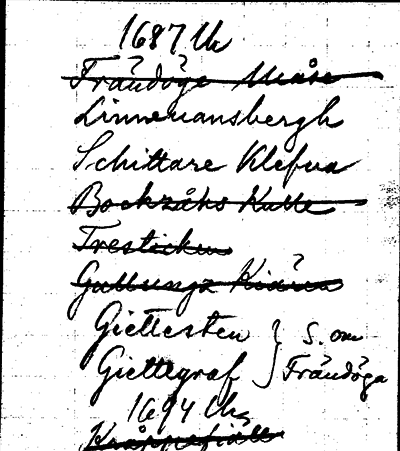 1687 Uh
? ?
Frändöge Måse
Linnemansbergh
Schittare Klefva
Bockzåks Kulle
Trestickan
?
Gullungz Kiärna
Giettesten } S. om
Giettegraf } Frändöga
1694 Uh
Kråppefiäll